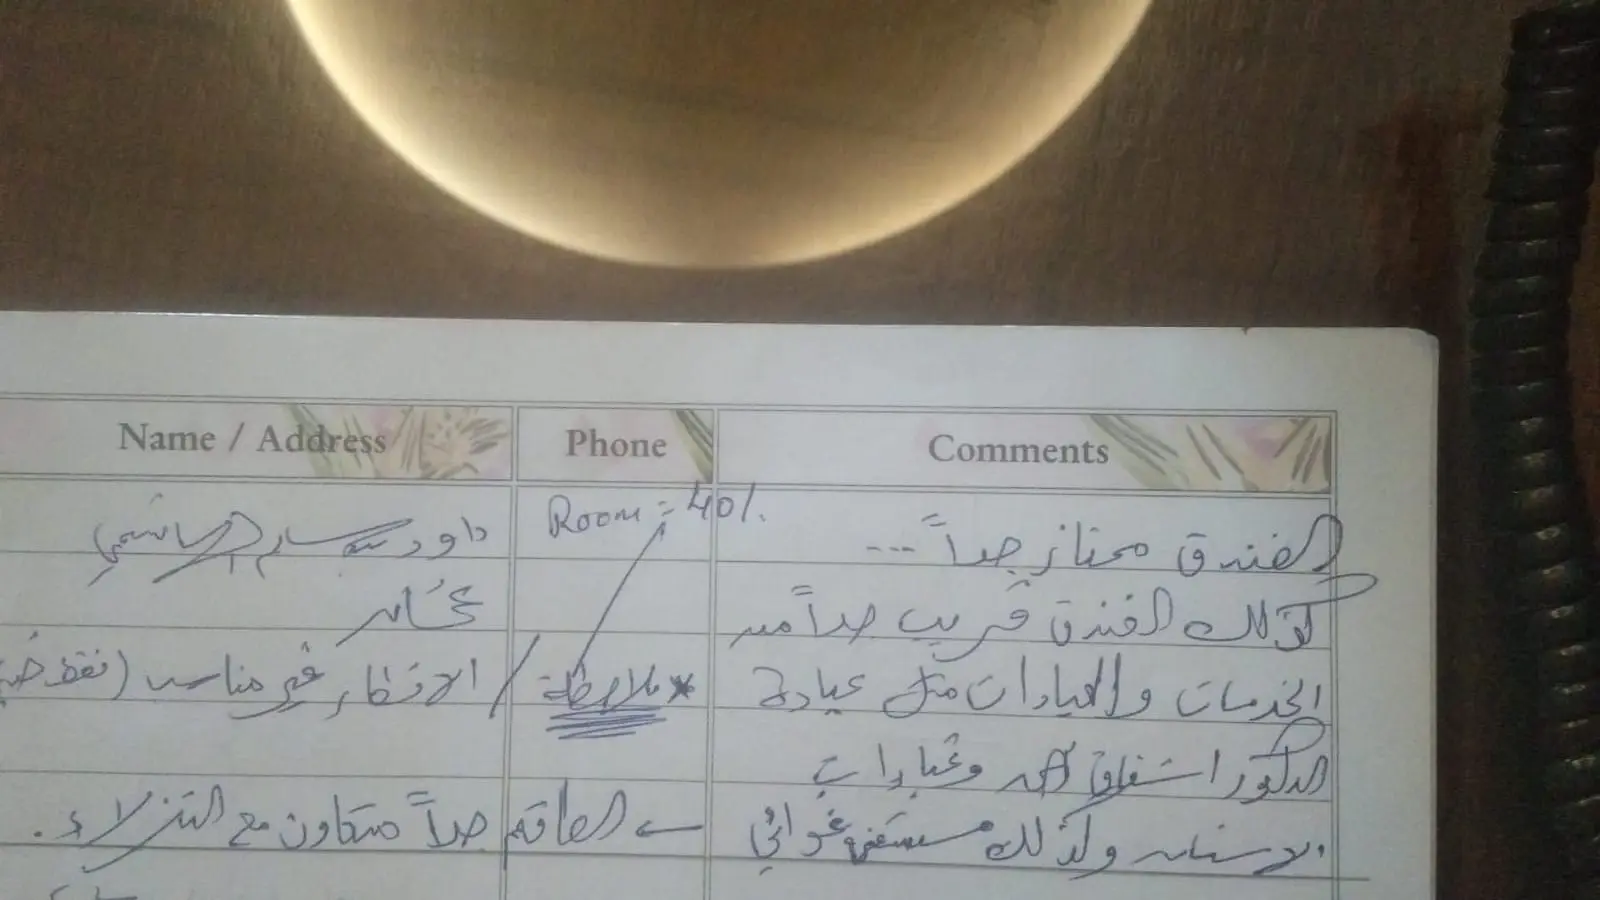 Name / Address Phone Comments
داود سالم الهاشمي Room = 401.
الفندق ممتاز جداً ...
عُمان
كذلك الفندق قريب جداً من
* ملاحظة / الافطار غير مناسب (فقط
الخدمات والعيادات مثل عيادة
الدكتور اشفاق وعيادات
← الطاقم جداً متعاون مع النزلاء.
الاسنان وكذلك مستشفى